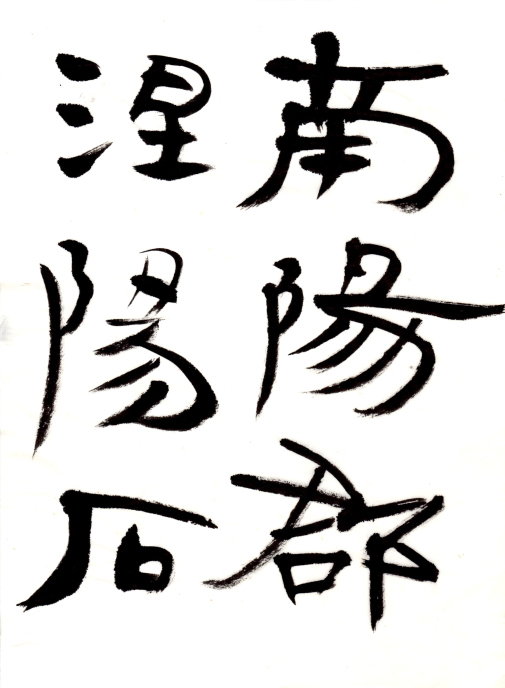 南陽郡
涅陽石